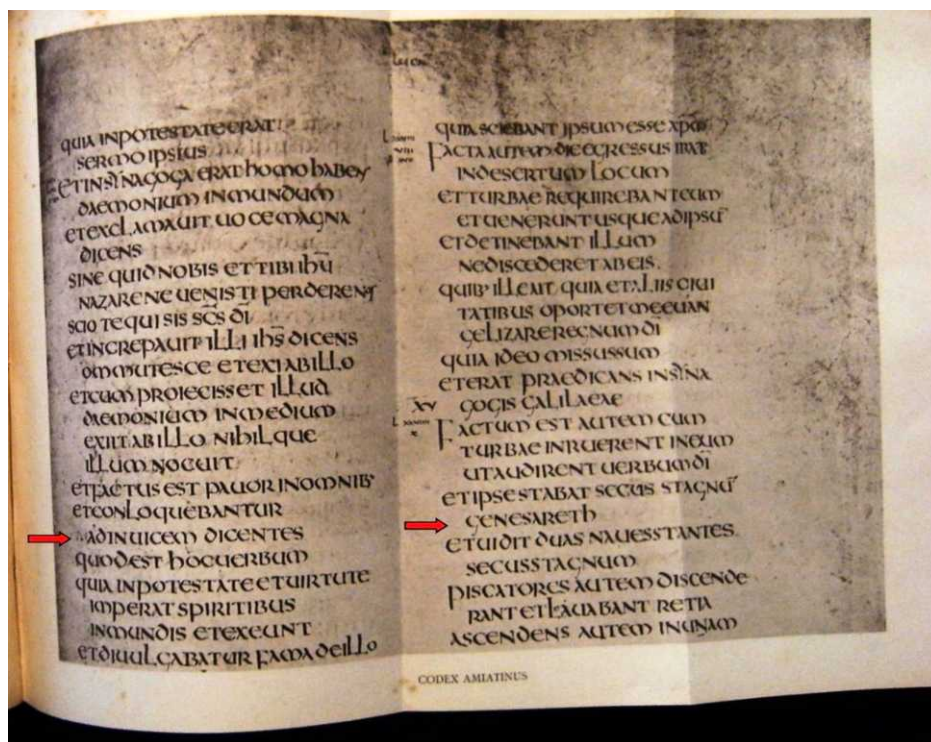 QUIA INPOTESTATE ERAT
SERMO IPSIUS
ETINSYNAGOGA ERAT HOMO HABENS
DAEMONIUM INMUNDUM
ETEXCLAMAUIT UOCE MAGNA
DICENS
SINE QUID NOBIS ET TIBI IHŪ
NAZARENE UENISTI PERDERE NOS
SCIO TE QUI SIS SC̄S DĪ
ETINCREPAUIT ILLI IHS̄ DICENS
OMMUTESCE ET EXI AB ILLO
ETCUM PROIECISSET ILLUM
DAEMONIUM IN MEDIUM
EXIIT AB ILLO NIHILQUE
ILLUM NOCUIT
ETFACTUS EST PAUOR INOMNIB·
ETCONLOQUEBANTUR
ADINUICEM DICENTES
QUODEST HOCUERBUM
QUIA INPOTESTATE ET UIRTUTE
IMPERAT SPIRITIBUS
INMUNDIS ETEXEUNT
ETDIUULGABATUR FAMA DE ILLO
QUIA SCIEBANT IPSUM ESSE XPM̄
FACTA AUTEM DIE EGRESSUS IBAT
INDESERTUM LOCUM
ET TURBAE REQUIREBANT EUM
ET UENERUNT USQUE ADIPSŪ
ET DETINEBANT ILLUM
NEDISCEDERET AB EIS.
QUIB· ILLE AIT QUIA ET ALIIS CIUI
TATIBUS OPORTET ME EUAN
GELIZARE REGNUM DĪ
QUIA IDEO MISSUS SUM
ET ERAT PRAEDICANS IN SYNA
GOGIS GALILAEAE
XV
FACTUM EST AUTEM CUM
TURBAE INRUERENT IN EUM
UT AUDIRENT UERBUM DĪ
ET IPSE STABAT SECUS STAGNŪ
GENESARETH
ET UIDIT DUAS NAUES STANTES.
SECUS STAGNUM
PISCATORES AUTEM DISCENDE
RANT ET LAUABANT RETIA
ASCENDENS AUTEM IN UNAM
CODEX AMIATINUS